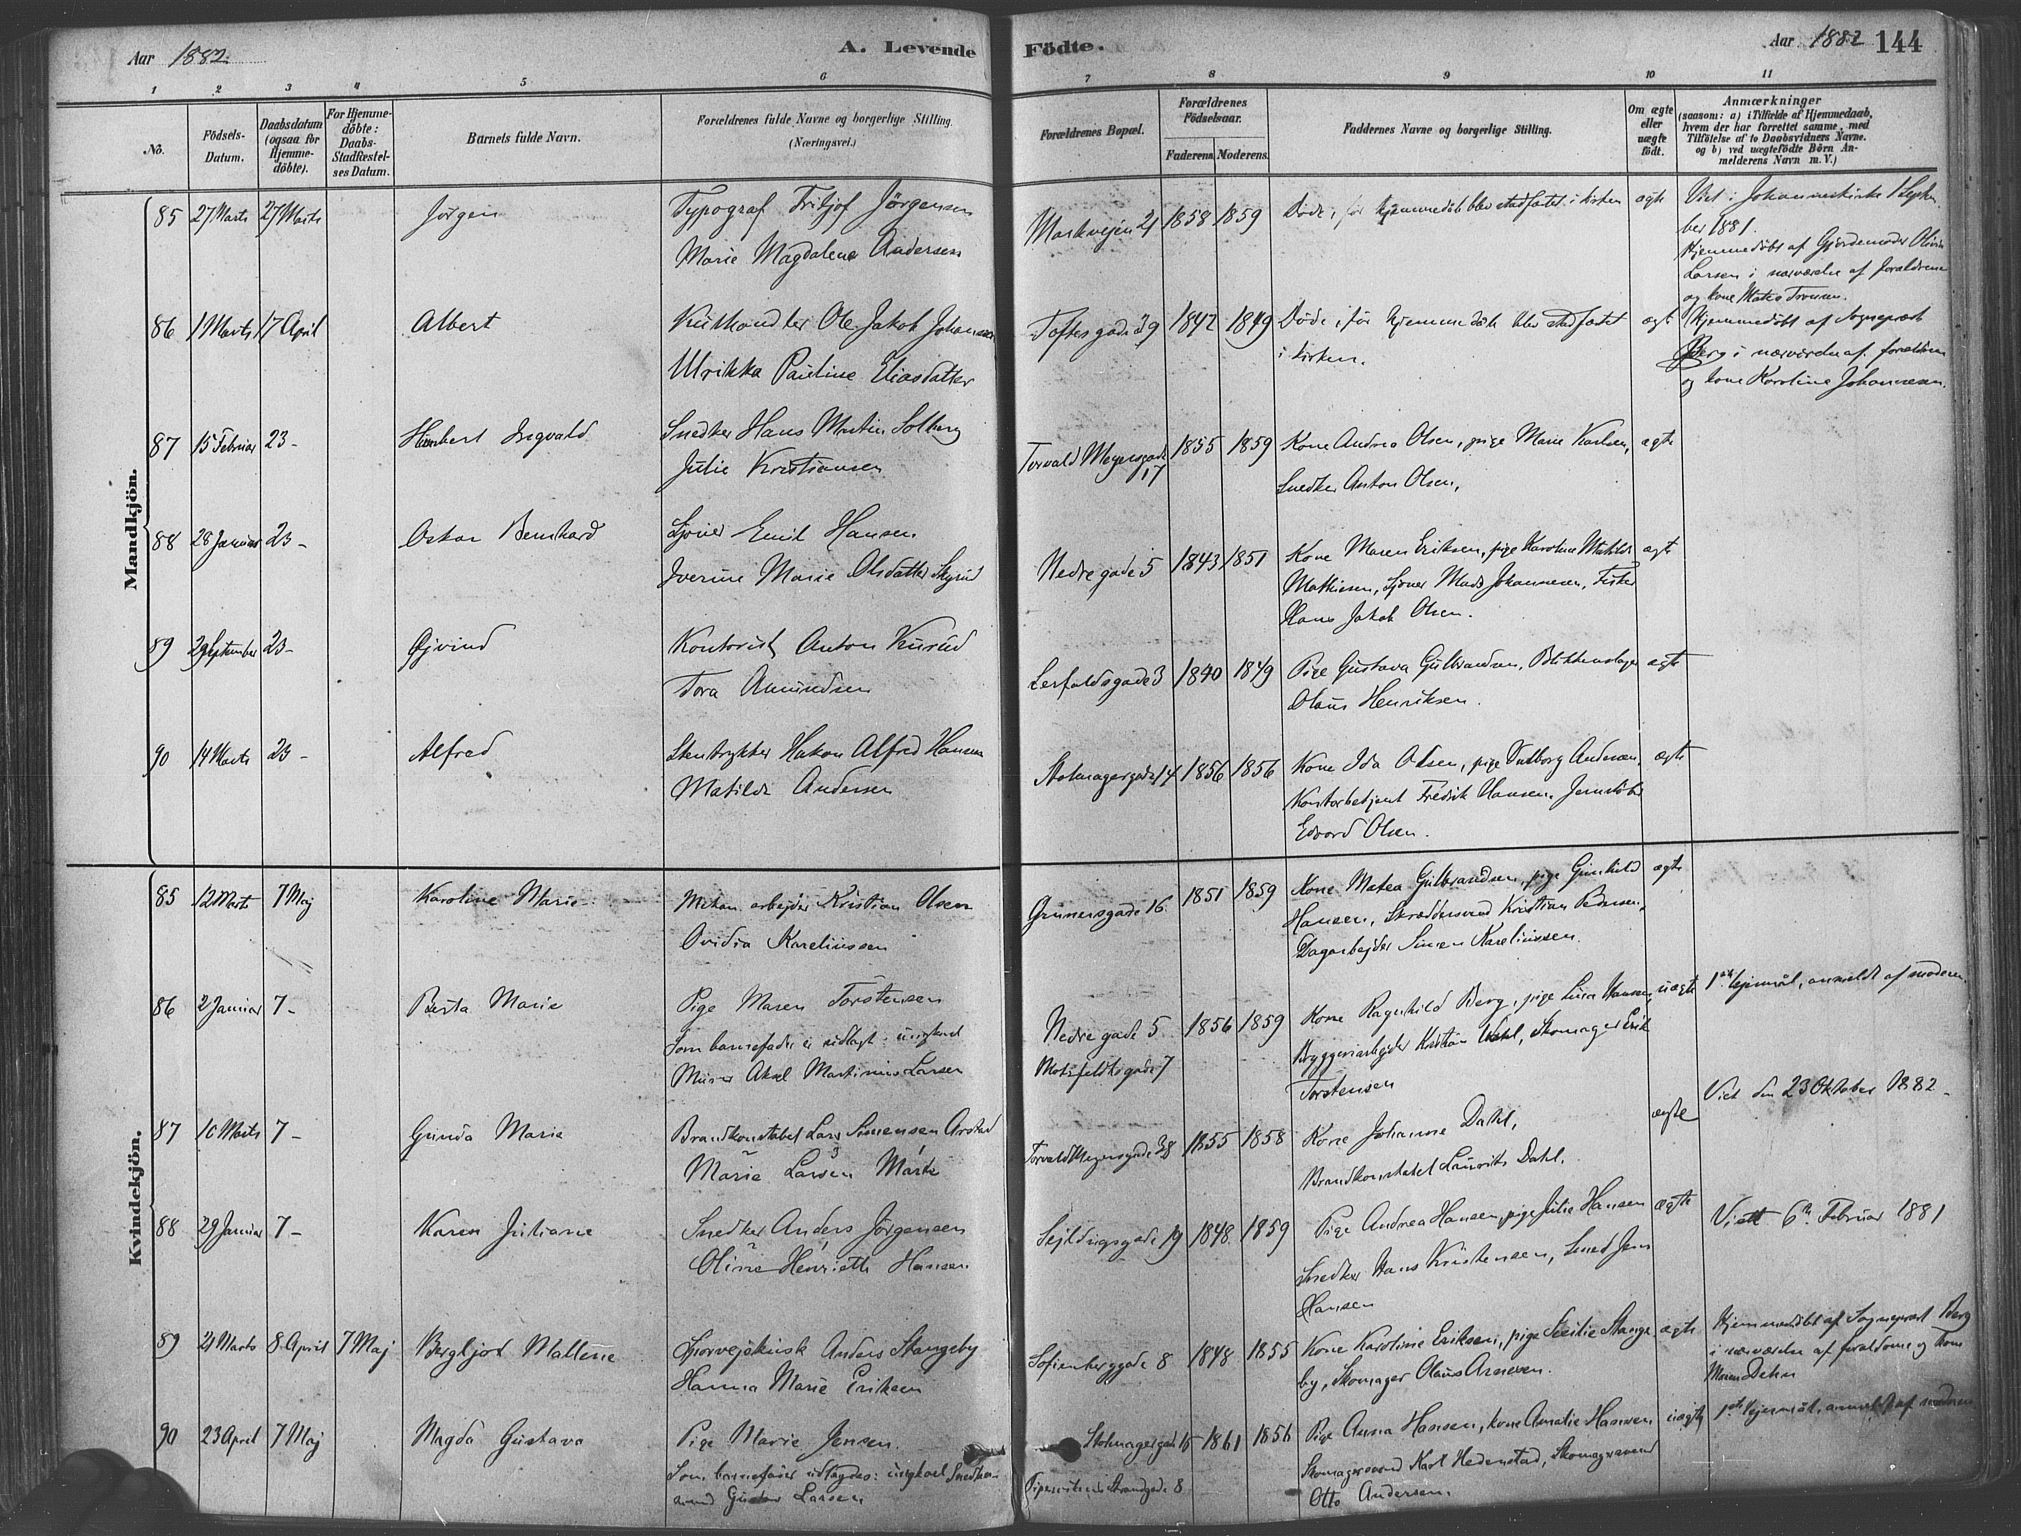 Aar 1882.
A. Levende Födte.
Aar 1882
144
1 2 3 4 5 6 7 8 9 10 11
No.
Födsels-
Datum.
Daabsdatum
(ogsaa for
Hjemme-
döbte).
For Hjemme-
döbte:
Daabs-
Stadfæstel-
ses Datum.
Barnets fulde Navn.
Forældrenes fulde Navne og borgerlige Stilling
(Næringsvei.)
Forældrenes Bopæl.
Forældrenes
Födselsaar.
Faderens. Moderens.
Faddernes Navne og borgerlige Stilling.
Om ægte
eller
uægte
födt.
Anmærkninger
(saasom: a) i Tilfælde af Hjemmedaab,
hvem der har forrettet samme, med
Tilföielse af to Daabsvidners Navne.
og b) ved uægtefödte Börn An-
melderens Navn m. V.)
Mandkjön.
85 27 Marts 27 Marts Jörgen Typograf Fritjof Jörgensen
Marie Magdalene Andersen
Markvejen 21 1858 1859 Døde, før hjemmedåb blev stadfæstet i kirken ægte
Viet i Johanneskirke
ber 1881.
Hjemmedøbt af Gjordemoder
Larsen i nærværelse af forældrene
og kone
86 1 Marts 17 April Albert Ole Jakob Johansen
Ulrikka Pauline Eliasdatter
Toftesgade 29 1842 1849 Døde, før hjemmedåb blev stadfæstet
i kirken.
ægte
Hjemmedøbt af Sognepræst
Berg i nærværelse af forældrene
og kone Karoline Johannesen.
87 15 Februar 23 - Ingvald Snedker Hans Martin Solberg
Julie Kristiansen
Torvald Meyersgade
17
1855 1859 Kone Andrea Olsen, pige Marie Karlsen,
Snedker Anton Olsen,
ægte
88 28 Januar 23 - Oskar Bernhard Emil Hansen
Iverine Marie Olsdatter
Nedregade 5 1843 1851 Kone Maren Eriksen, pige Karoline Matilde
Mathisen, Mads Johannesen, Fisker
Hans Jakob Olsen.
ægte
89 29 September 23 - Øjvind Kontorist Anton
Tora Amundsen
3 1840 1849 Pige Gustava Gulbrandsen, Blikkenslager
Olaus Henriksen.
ægte
90 14 Marts 23 - Alfred Stentrykker Hakon Alfred Hansen
Matilde Andersen
Stolmagergade 14 1856 1856 Kone Ida Olsen, pige Andersen,
Kontorbetjent Fredrik Hansen,
Edvard Olsen.
ægte
Kvindekjön.
85 12 Marts 7 Maj Karoline Marie Mekan. arbejder Kristian Olsen
Ovidia Karelinssen
Grunersgade 16 1851 1859 Kone Matea Gulbrandsen, pige Gunhild
Hansen, Skræddersvend Kristian Pedersen,
Dagarbejder Simen Karelinssen.
ægte
86 2 Januar 7 - Berta Marie Pige Maren Torstensen
Som barnefader er udlagt: ungkarl
Murer Aksel Martinius Larsen
Nedregade 5
Motzfeldtsgade 7
1856 1859 Kone Ragnhild Berg, pige Lina Hansen,
Bryggeriarbejder Kristian Dahl, Skomager Erik
Torstensen
uægte
1ste lejermål, anmeldt af moderen.
87 10 Marts 7 - Gunda Marie Brandkonstabel Lars Simensen
Marie Larsen
Torvald Meyersgade 38 1855 1858 Kone Johanne Dahl,
Brandkonstabel Laurits Dahl.
ægte
Viet den 23 Oktober 1882 -
88 29 Januar 7 - Karen Juliane Snedker Anders Jörgensen
Oline Henriette Hansen
Sejldugsgade 19 1848 1859 Pige Andrea Hansen, pige Julie Hansen
Snedker Hans Kristensen, Smed Jens
Hansen
ægte
Viet 6te Februar 1881
89 21 Marts 8 April 7 Maj Bergljot Mallene Sporvejskusk Anders Stangeby
Hanna Marie Eriksen
Sofienberggade 8 1848 1855 Kone Karoline Eriksen, pige Secilie Stange-
by, Skomager Olaus Arnesen.
ægte
Hjemmedøbt af Sognepræst Berg
i nærværelse af forældrene og kone
Maren Dehn
90 23 April 7 Maj Magda Gustava Pige Marie Jensen.
Som barnefader udlagdes: ungkarl Snedker-
svend Gustav Larsen
Stolmagergade 15
Strandgade 8
1861 1856 Pige Anna Hansen, kone Amalie Hansen
Skomagersvend Karl Hedenstad, Skomagersvend
Otto Andersen.
uægte
1ste lejermål, anmeldt af moderen